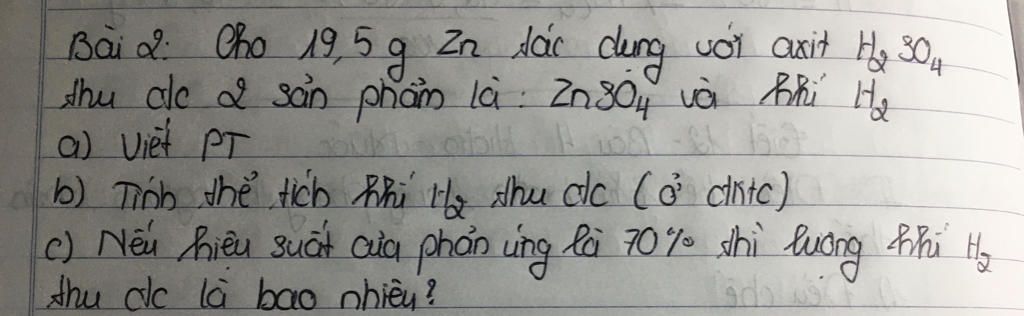 Bài 2: Cho 19,5 g Zn tác dụng với axit H₂SO₄
thu đc 2 sản phẩm là: ZnSO₄ và khí H₂
a) Viết PT
b) Tính thể tích khí H₂ thu đc (ở đktc)
c) Nếu hiệu suất của phản ứng là 70% thì lượng khí H₂
thu đc là bao nhiêu?